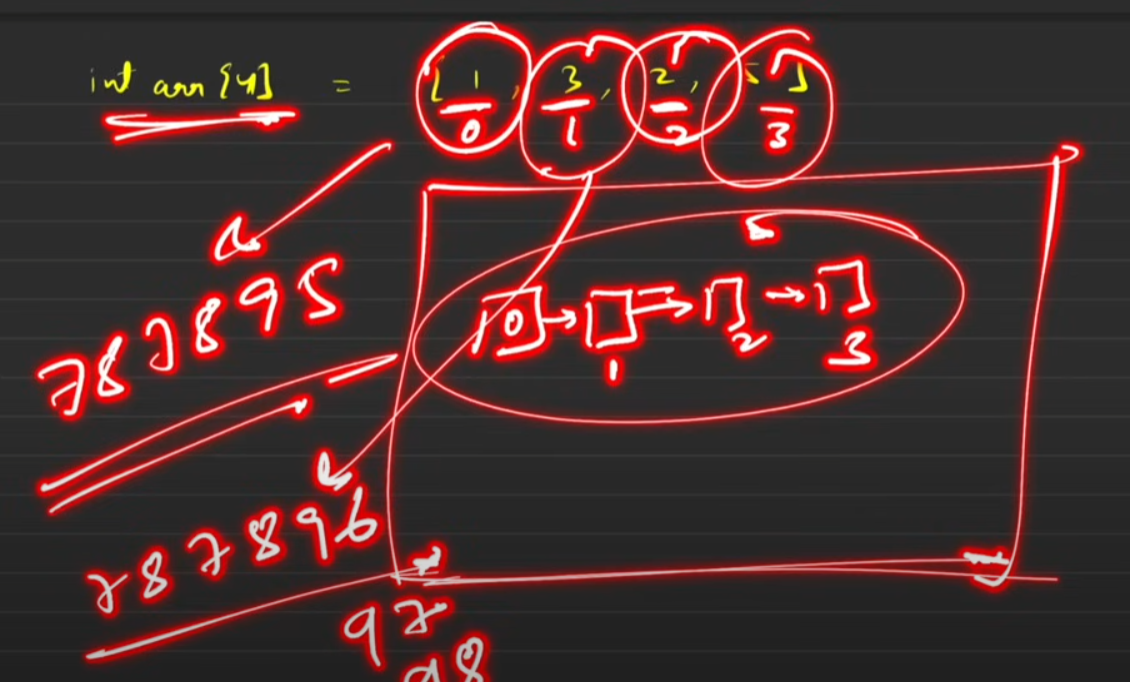 int arr[4] = [1, 3, 2, 5]
0 1 2 3
787895
5
0
1 2 3
787896
97
98